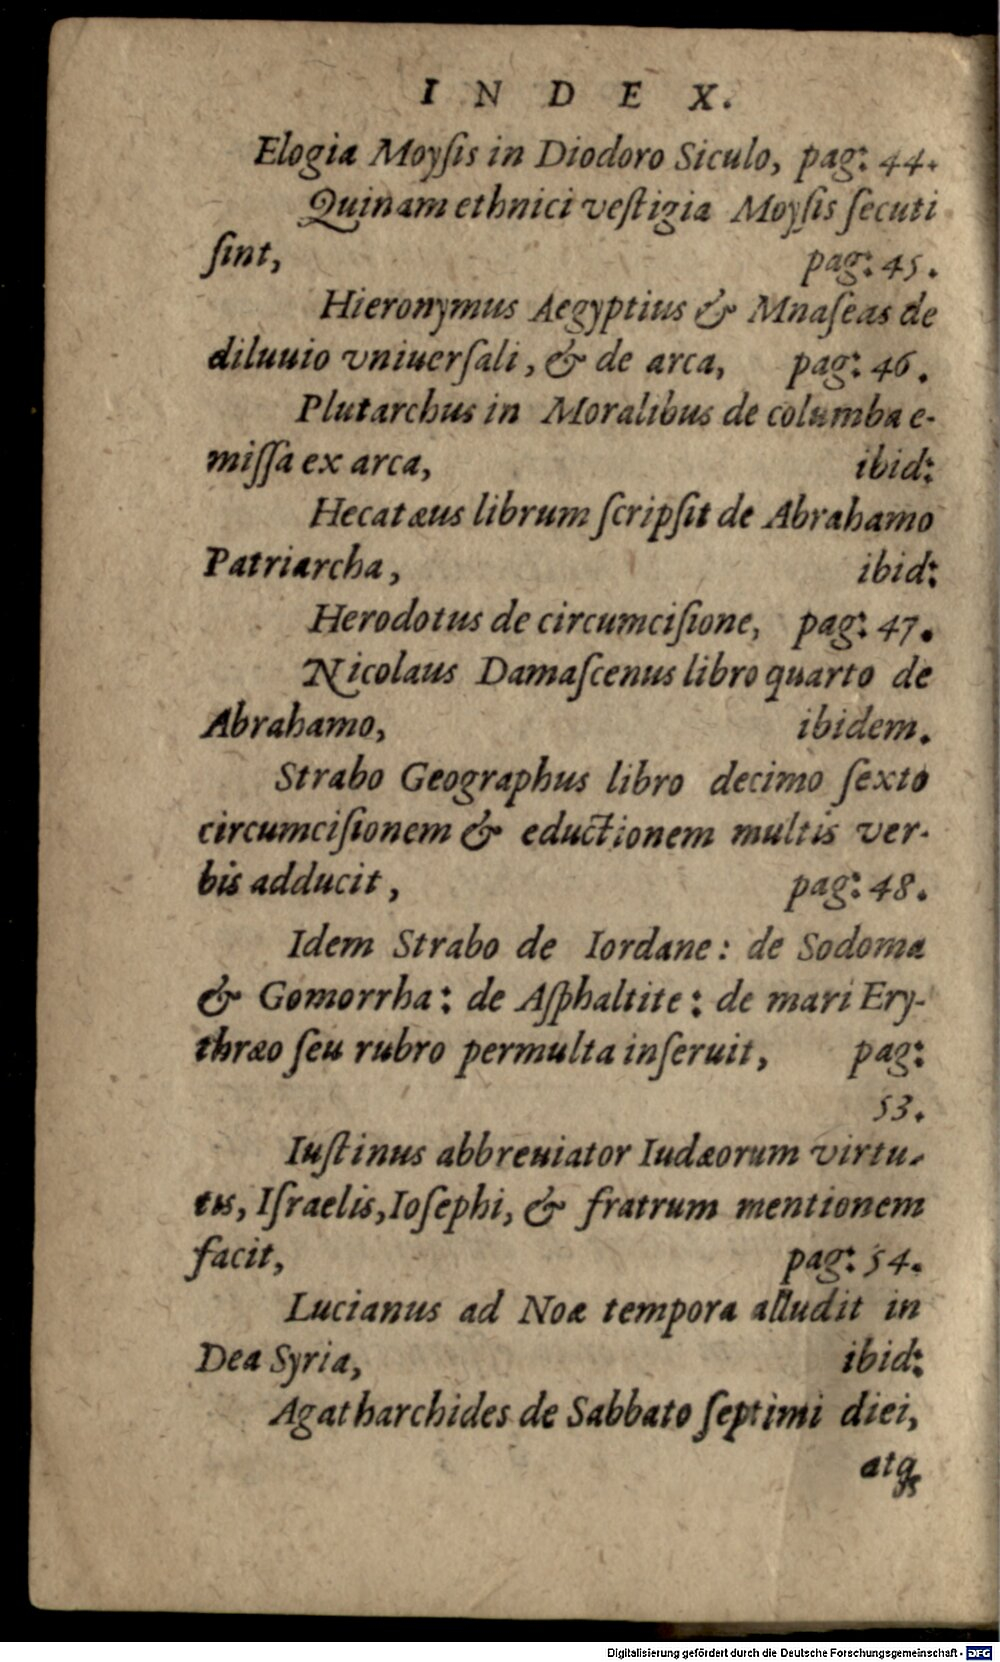 INDEX.
Elogia Moyſis in Diodoro Siculo, pag: 44.
Quinam ethnici veſtigia Moyſis ſecuti
ſint, pag: 45.
Hieronymus Aegyptius & Mnaſeas de
diluuio vniuerſali, & de arca, pag: 46.
Plutarchus in Moralibus de columba e-
miſſa ex arca, ibid:
Hecatæus librum ſcripſit de Abrahamo
Patriarcha, ibid:
Herodotus de circumciſione, pag: 47.
Nicolaus Damaſcenus libro quarto de
Abrahamo, ibidem.
Strabo Geographus libro decimo ſexto
circumciſionem & eductionem multis ver-
bis adducit, pag: 48.
Idem Strabo de Iordane: de Sodoma
& Gomorrha: de Aſphaltite: de mari Ery-
thræo ſeu rubro permulta inſeruit, pag:
53.
Iuſtinus abbreuiator Iudæorum virtu-
tis, Iſraelis, Ioſephi, & fratrum mentionem
facit, pag: 54.
Lucianus ad Noæ tempora alludit in
Dea Syria, ibid:
Agatharchides de Sabbato ſeptimi diei,
atq́;
Digitalisierung gefördert durch die Deutsche Forschungsgemeinschaft - DFG